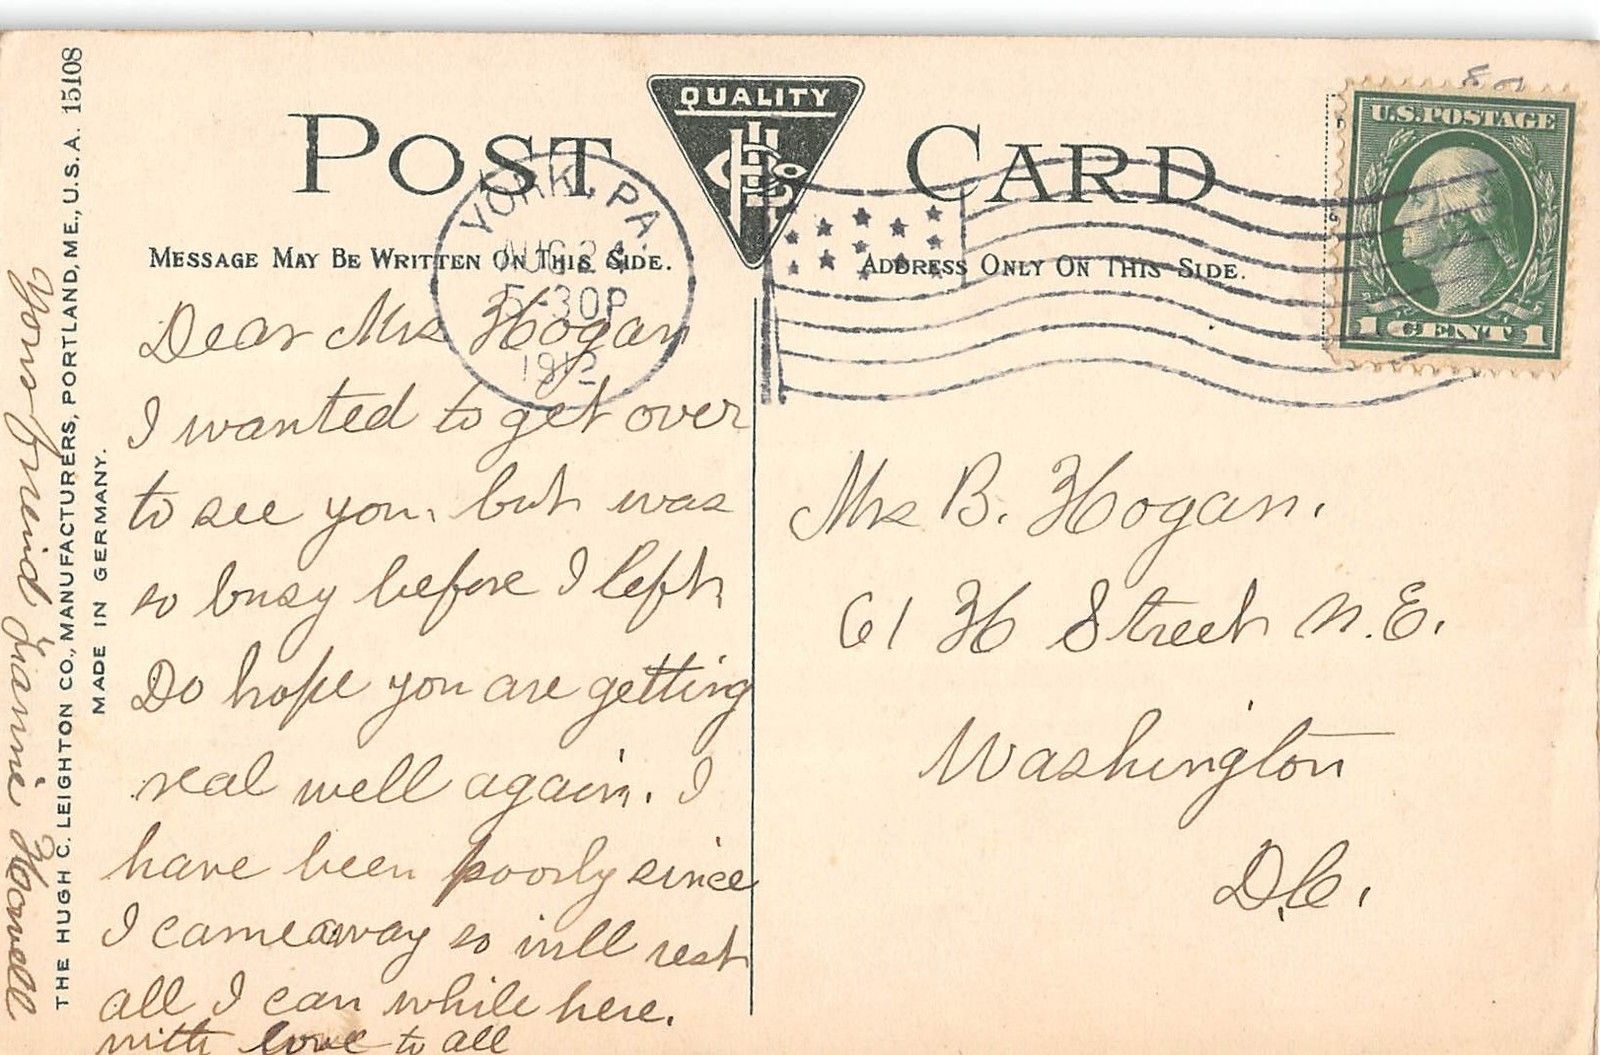 POST CARD
QUALITY
YORK, PA.
AUG 24
5-30P
1912
U.S. POSTAGE
1 CENT 1
MESSAGE MAY BE WRITTEN ON THIS SIDE.
ADDRESS ONLY ON THIS SIDE.
Dear Mrs Hogan
I wanted to get over
to see you, but was
so busy before I left,
Do hope you are getting
real well again. I
have been poorly since
I came away so will rest
all I can while here.
with love to all
Your freind Fannie Howell
Mrs B. Hogan.
61 H Street N.E.
Washington
D.C.
THE HUGH C. LEIGHTON CO., MANUFACTURERS, PORTLAND, ME., U.S.A. 15108
MADE IN GERMANY.